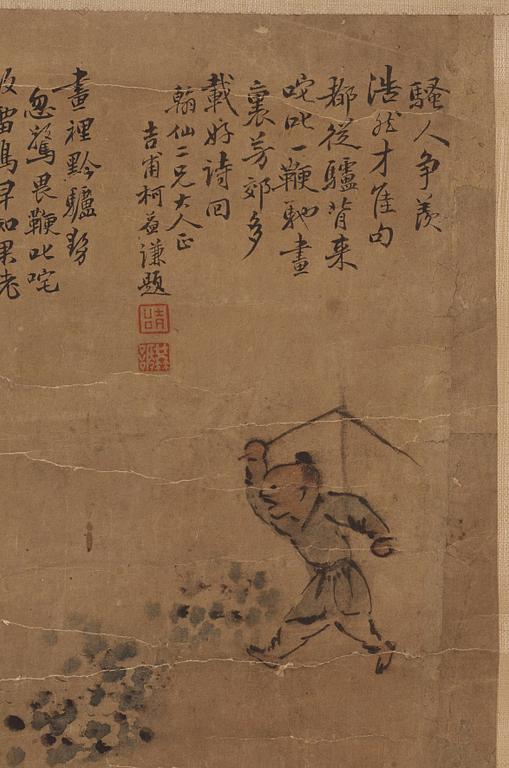 騷人争羨
浩然才隹句
都從驢背来
咤叱一鞭馳畫
裏芳郊多
載好詩回
翰仙二兄大人正
吉甫柯益謙題
畫裡黔驢
忽驚畏鞭叱咤
早知果老